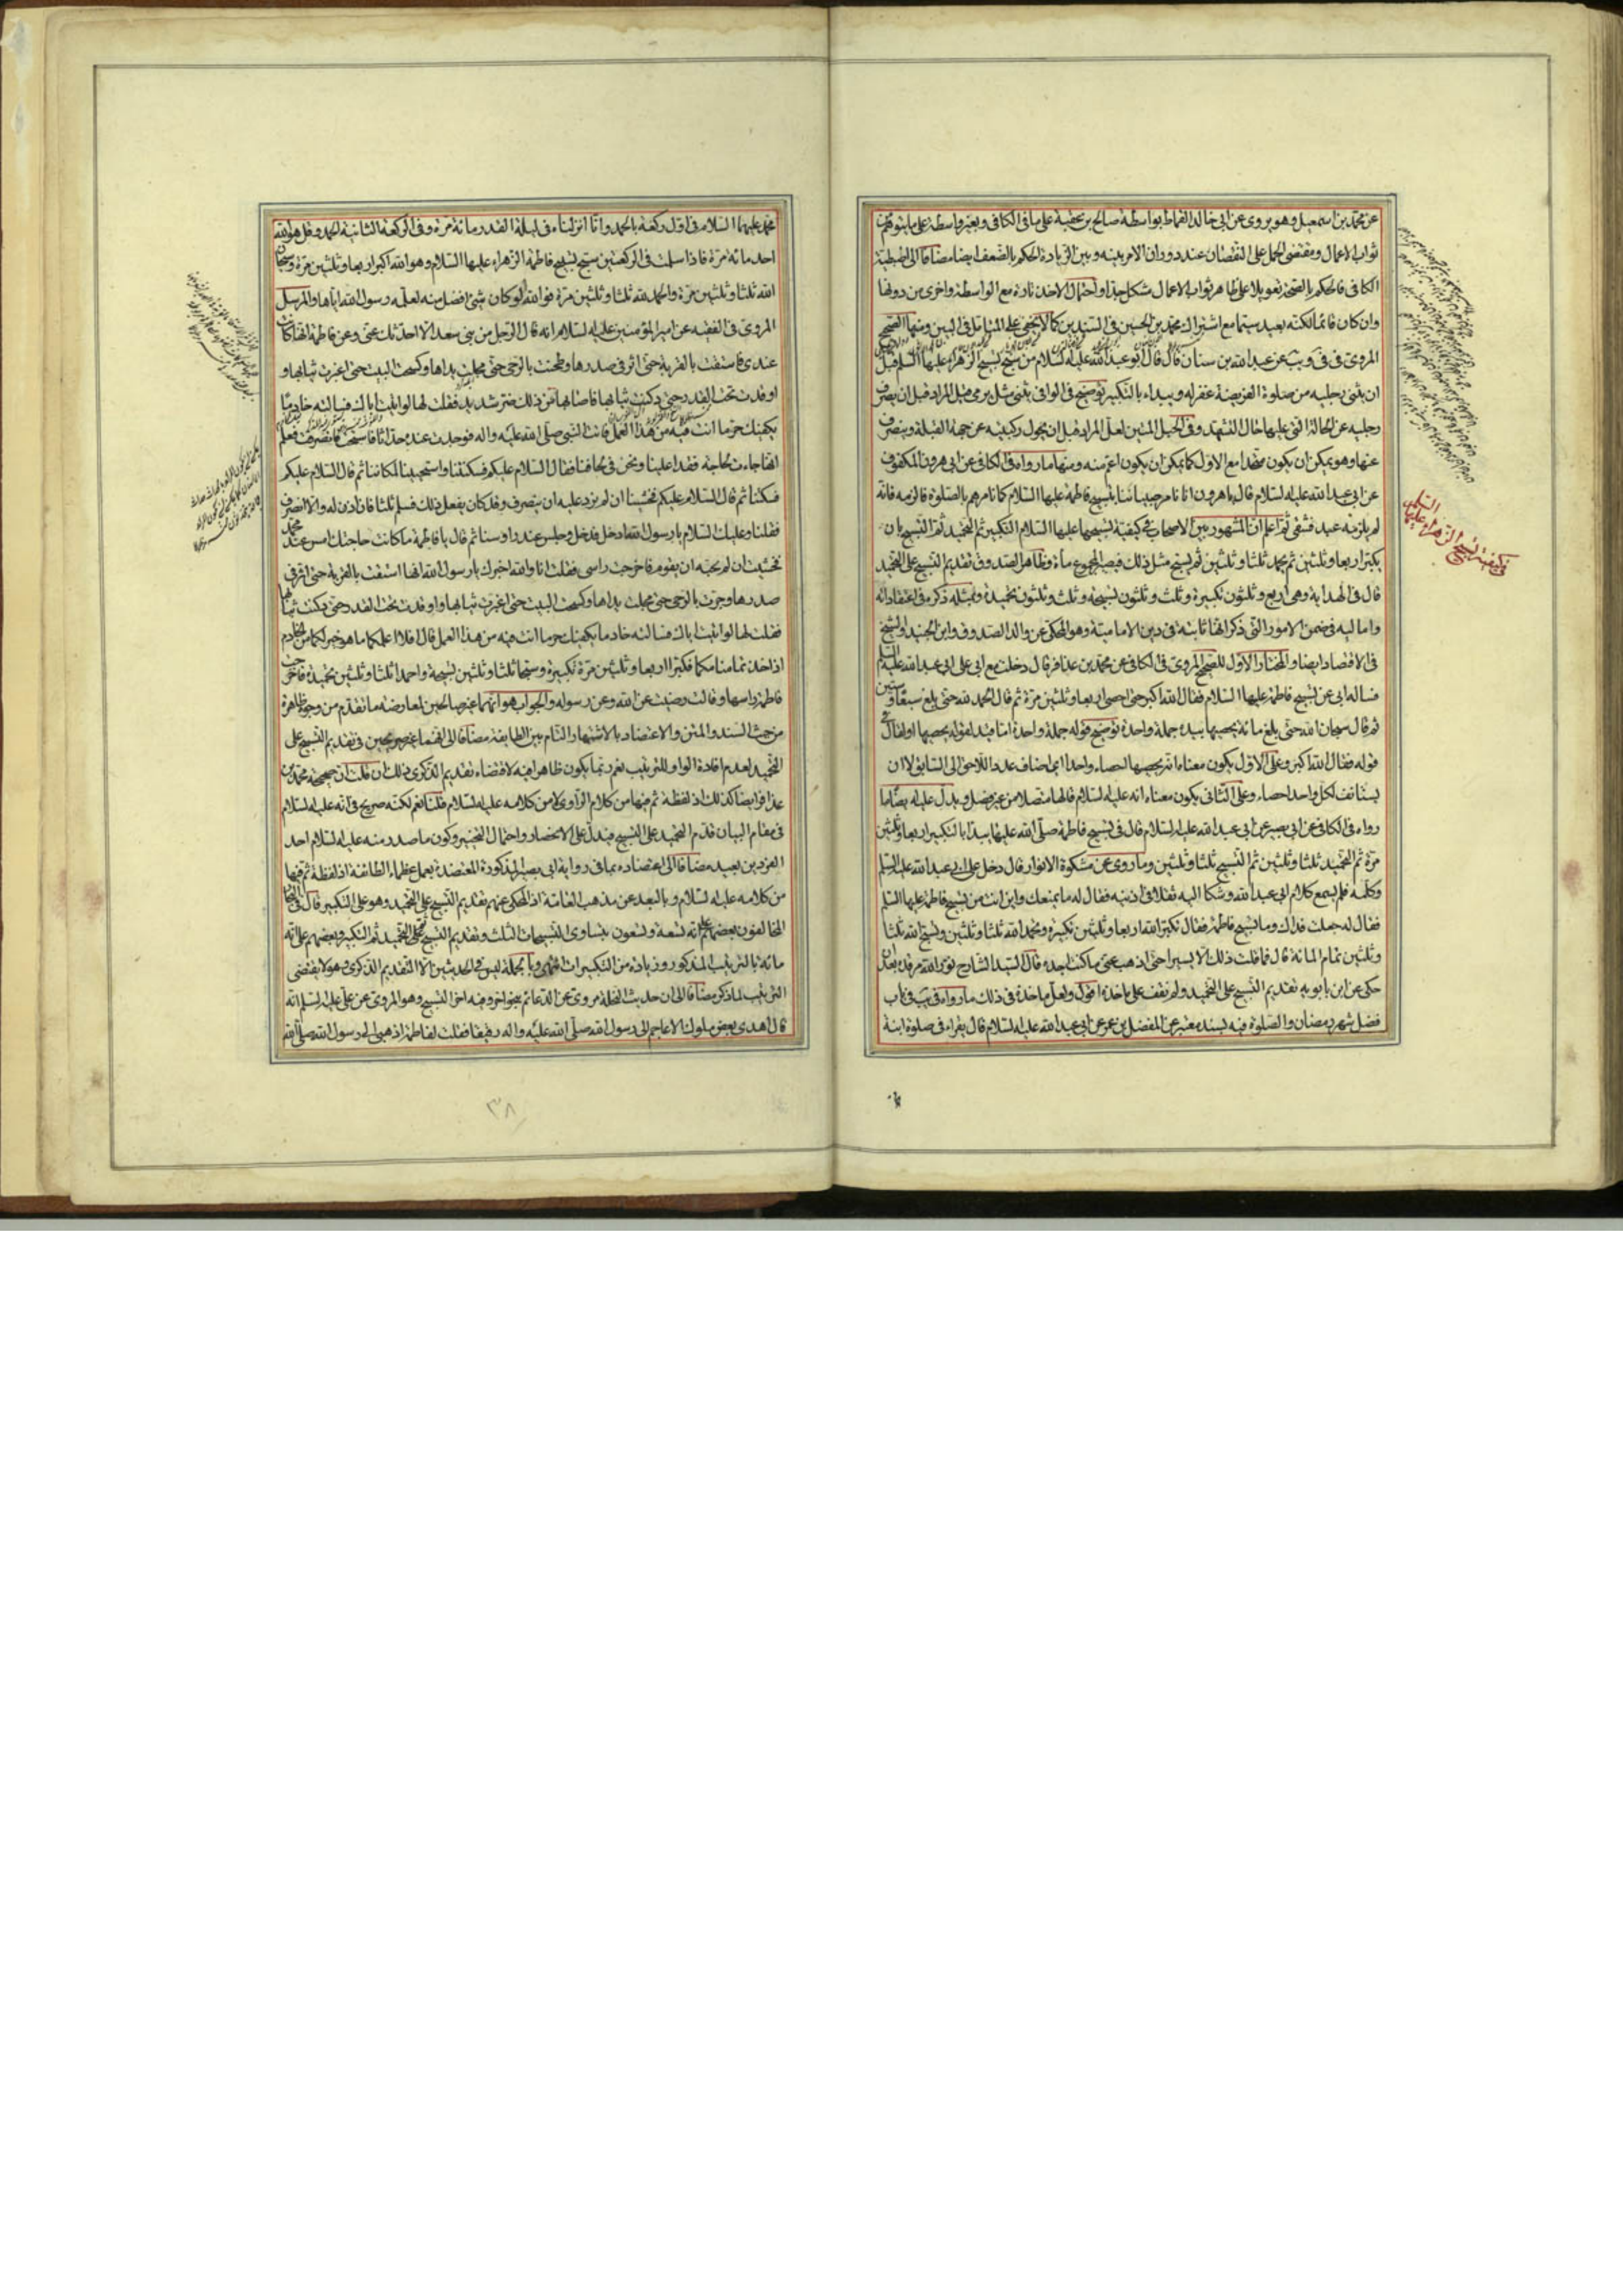 عن محمد بن اسمعيل وهو يروى عن ابى خالد القماط بواسطة صالح بن عقبة على ما فى الكافى وبغير واسطة على ما فى
ثواب الاعمال ومقتضى الحمل على النقصان عند دوران الامر بينه وبين الزيادة الحكم بالضعف ايضا مضافا الى اضبطية
الكافى فالحكم بالصحة تعويلا على ظاهر ثواب الاعمال مشكل جدا واحتمال الاخذ تارة مع الواسطة واخرى من دونها
وان كان قائما لكنه بعيد سيما مع اشتراك محمد بن الحسين فى السندين كما لا يخفى على المتامل فى البين ومنها الصحيح
المروى فى فى ويب عن عبد الله بن سنان قال قال ابو عبد الله عليه السلام من سبح تسبيح الزهراء عليها السلم قبل
ان يثنى رجليه من صلوة الفريضة غفر له ويبداء بالتكبير توضيح فى الوافى يثنى مثل يرمى قبل المراد قبل ان يصرف
رجليه عن الحالة التى عليها حال التشهد وفى الحبل المتين لعل المراد قبل ان يحول ركبتيه عن جهة القبلة وينصرف
عنها وهو يمكن ان يكون متحدا مع الاول كما يمكن ان يكون اعم منه ومنها ما رواه فى الكافى عن ابى هرون المكفوف
عن ابى عبد الله عليه السلام قال يا هرون انا نامر صبياننا بتسبيح فاطمة عليها السلام كما نامرهم بالصلوة فالزمه فانه
لم يلزمه عبد فشقى ثم اعلم ان المشهور بين الاصحاب فى كيفية تسبيحها عليها السلام التكبير ثم التحميد ثم التسبيح بان
يكبر اربعا وثلثين ثم يحمد ثلثا وثلثين ثم يسبح مثل ذلك فيصير المجموع مأة وظاهر الصدوق تقديم التسبيح على التحميد
قال فى الهداية وهى اربع وثلثون تكبيرة وثلث وثلثون تسبيحة وثلث وثلثون تحميدة وبمثله ذكره فى اعتقاداته
واماليه فى ضمن الامور التى ذكر انها ثابتة فى دين الامامية وهو المحكى عن والد الصدوق وابن الجنيد والشيخ
فى الاقتصاد ايضا والمختار الاول للصحيح المروى فى الكافى عن محمد بن عذافر قال دخلت مع ابى على ابى عبد الله عليه السلم
فساله ابى عن تسبيح فاطمة عليها السلام فقال الله اكبر حتى احصى اربعا وثلثين مرة ثم قال الحمد لله حتى بلغ سبعا وستين
ثم قال سبحان الله حتى بلغ مائة يحصيها بيده جملة واحدة توضيح قوله جملة واحدة اما قيد لقوله يحصيها او لقال فى
قوله فقال الله اكبر وعلى الاول يكون معناه انه يحصيها احصاء واحدا اى اضاف عدد اللاحق الى السابق لا ان
يستانف لكل واحد احصاء وعلى الثانى يكون معناه انه عليه السلام قالها متصلا من غير فصل ويدل عليه ايضا ما
رواه فى الكافى عن ابى بصير عن ابى عبد الله عليه السلام قال فى تسبيح فاطمة صلى الله عليها يبدأ بالتكبير اربعا وثلثين
مرة ثم التحميد ثلثا وثلثين ثم التسبيح ثلثا وثلثين وما روى عن مشكوة الانوار قال دخل على ابى عبد الله عليه السلم
وكلمه فلم يسمع كلام ابى عبد الله وشكا اليه ثقلا فى اذنيه فقال له ما يمنعك واين انت من تسبيح فاطمة عليها السلم
فقال له جعلت فداك وما تسبيح فاطمة فقال تكبر الله اربعا وثلثين تكبيرة وتحمد الله ثلثا وثلثين وتسبح الله ثلثا
وثلثين تمام المائة قال فما فعلت ذلك الا يسيرا حتى اذهب عنى ما كنت اجده قال السيد الشارح نور الله مرقده بعد ان
حكى عن ابن بابويه تقديم التسبيح على التحميد ولم نقف على ماخذه اقول ولعل ماخذه فى ذلك ما رواه فى يب فى باب
فضل شهر رمضان والصلوة فيه بسند معتبر عن المفضل بن عمر عن ابى عبد الله عليه السلام قال يقراء فى صلوة ابنة
فى كيفية تسبيح الزهراء عليها السلم
محمد عليهما السلام فى اول ركعة بالحمد وانا انزلناه فى ليلة القدر مائة مرة وفى الركعة الثانية الحمد وقل هو الله
احد مائة مرة فاذا سلمت فى الركعتين سبح تسبيح فاطمة الزهراء عليها السلام وهو الله اكبر اربعا وثلثين مرة وسبحان
الله ثلثا وثلثين مرة والحمد لله ثلثا وثلثين مرة فو الله لو كان شئ افضل منه لعلمه رسول الله اياها والمرسل
المروى فى الفقيه عن امير المؤمنين عليه السلام انه قال لرجل من بنى سعد الا احدثك عنى وعن فاطمة انها كانت
عندى فاستقت بالقربة حتى اثر فى صدرها وطحنت بالرحى حتى مجلت يداها وكسحت البيت حتى اغبرت ثيابها و
اوقدت تحت القدر حتى دكنت ثيابها فاصابها من ذلك ضر شديد فقلت لها لو اتيت اباك فسالته خادما
يكفيك حر ما انت فيه من هذا العمل فاتت النبى صلى الله عليه واله فوجدت عنده حداثا فاستحيت فانصرفت فعلم
انها جاءت لحاجة فغدا علينا ونحن فى لحافنا فقال السلام عليكم فسكتنا واستحيينا لمكاننا ثم قال السلام عليكم
فسكتنا ثم قال السلام عليكم فخشينا ان لم نرد عليه ان ينصرف وقد كان يفعل ذلك فيسلم ثلثا فان اذن له والا انصرف
فقلنا وعليك السلام يا رسول الله ادخل فدخل وجلس عند رؤسنا ثم قال يا فاطمة ما كانت حاجتك امس عند محمد
فخشيت ان لم نجبه ان يقوم فاخرجت راسى فقلت انا والله اخبرك يا رسول الله انها استقت بالقربة حتى اثر فى
صدرها وجرت بالرحى حتى مجلت يداها وكسحت البيت حتى اغبرت ثيابها واوقدت تحت القدر حتى دكنت ثيابها
فقلت لها لو اتيت اباك فسالته خادما يكفيك حر ما انت فيه من هذا العمل قال افلا اعلمكما ما هو خير لكما من الخادم
اذا اخذتما منامكما فكبرا اربعا وثلثين مرة تكبيرة وسبحا ثلثا وثلثين تسبيحة واحمدا ثلثا وثلثين تحميدة فاخرجت
فاطمة راسها وقالت رضيت عن الله وعن رسوله والجواب هو انهما غير صالحين لمعارضة ما تقدم من وجوه ظاهرة
من حيث السند والمتن والاعتضاد بالاشتهار التام بين الطايفة مضافا الى انهما غير صريحين فى تقديم التسبيح على
التحميد لعدم افادة الواو للترتيب نعم ربما يكون ظاهرا فيه لاقتضاء تقديم الذكرى ذلك ان قلت ان صحيحة محمد بن
عذافر ايضا كذلك اذ لفظة ثم فيها من كلام الراوى لا من كلامه عليه السلام قلنا نعم لكنه صريح فى انه عليه السلام
فى مقام البيان قدم التحميد على التسبيح فيدل على الانحصار واحتمال التخيير وكون ما صدر منه عليه السلام احد
الفردين بعيد مضافا الى اعتضاده بما فى رواية ابى بصير المذكورة المعتضدة بعمل عظماء الطائفة اذ لفظة ثم فيها
من كلامه عليه السلام وبالبعد عن مذهب العامة اذ المحكى عنهم تقديم التسبيح على التحميد وهو على التكبير قال فى
المخالفون بعضهم على انه تسعة وتسعون بتساوى التسبيحات الثلث وتقديم التسبيح على التحميد ثم التكبير وبعضهم على انه
مائة بالترتيب المذكور وزيادة من التكبيرات انتهى وبالجملة ليس فى الحديثين الا التقديم الذكرى وهو لا يقتضى
الترتيب لما ذكر مضافا الى ان حديث النخلة مروى عن الدعائم بنحو اخر وفيه اخر التسبيح وهو المروى عن على عليه السلم انه
قال اهدى بعض ملوك الاعاجم الى رسول الله صلى الله عليه واله رقيقا فقلت لفاطمة اذهبى الى رسول الله صلى الله
٣٨